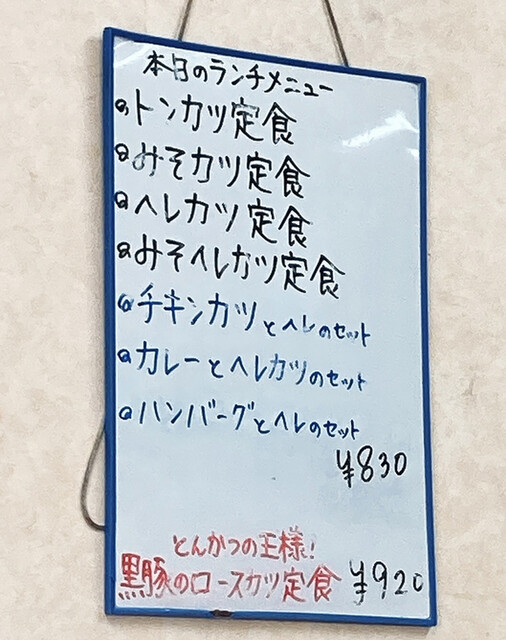 本日のランチメニュー
トンカツ定食
みそカツ定食
ヘレカツ定食
みそヘレカツ定食
チキンカツとヘレのセット
カレーとヘレカツのセット
ハンバーグとヘレのセット
¥830
とんかつの王様!
黒豚のロースカツ定食 ¥920